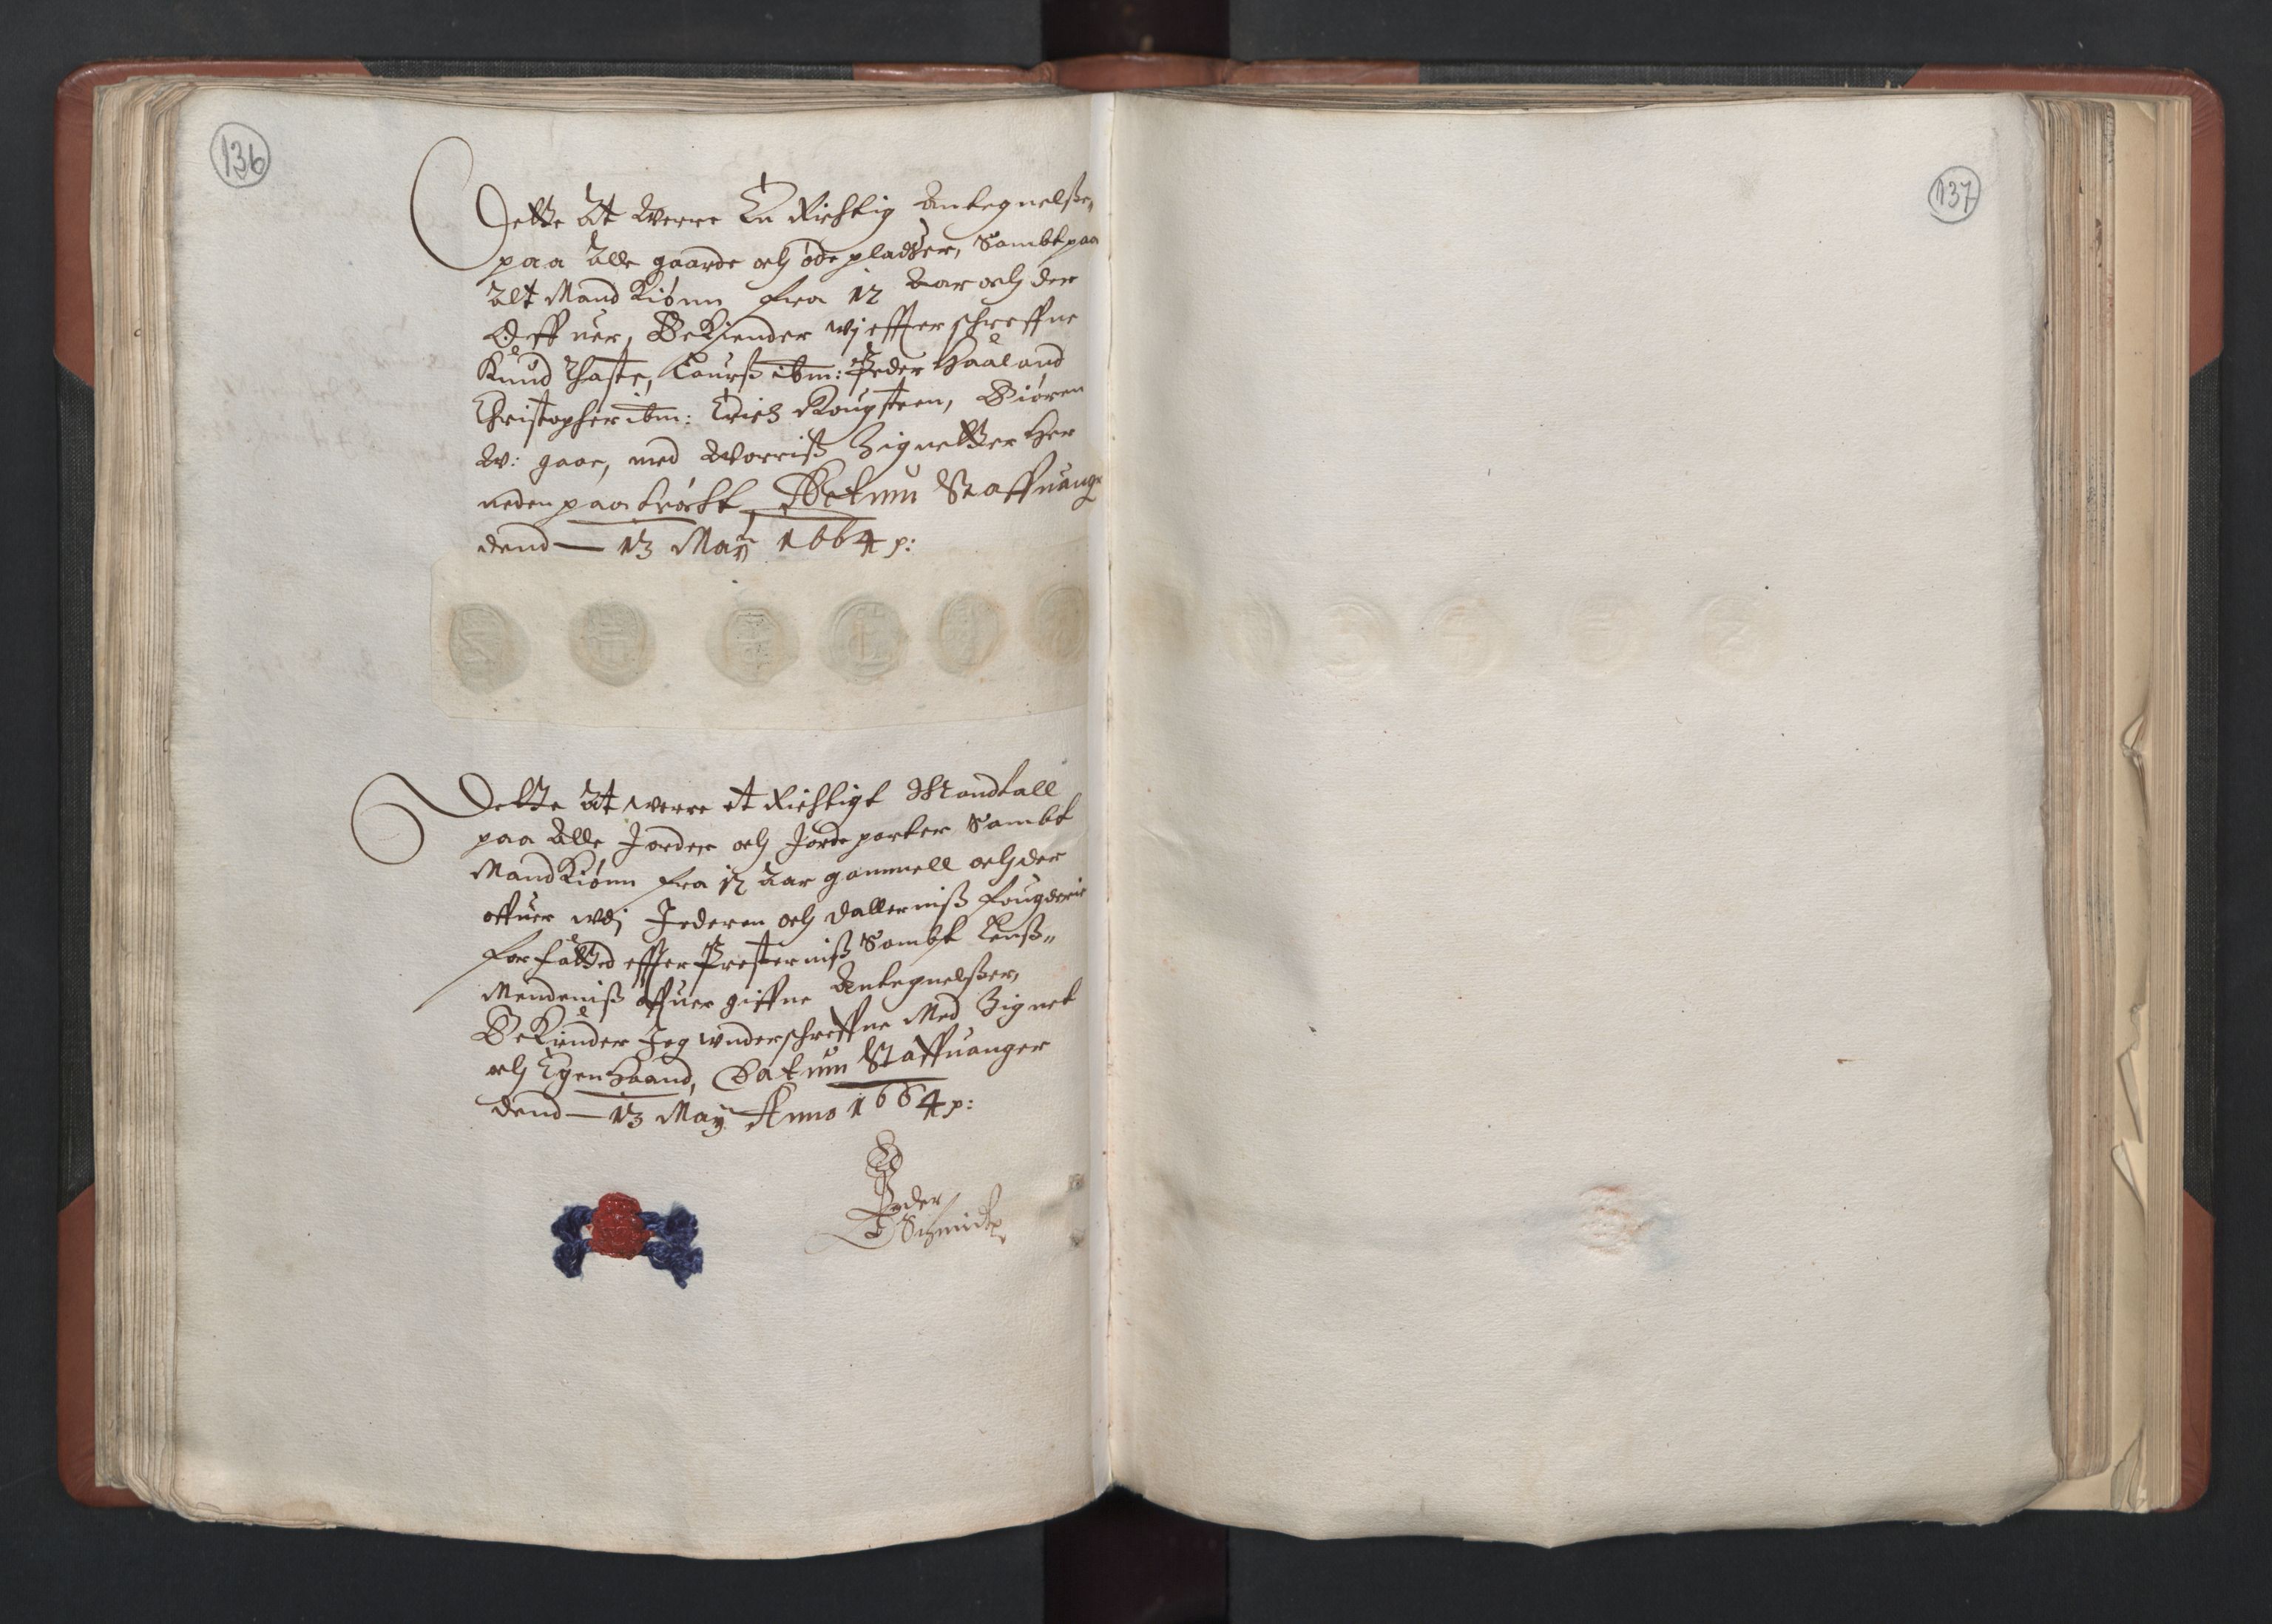 136
Dette at Werre En Richtig Antegnelße,,
paa Alle gaarde och øde pladtzer, Sambt paa
Alt Mand Kiønn fra 12 Aar och der
Offuer, Bekiender wj effterschreffne
Knud Thaste, Laurß ibm: Peder Haaland
Christopher ibm: Erich Rougsteen, Biøren
W: gaar, med Worriß Zignetter her
neden paa trøcht, Datum Staffuanger
dend — 13 Maij 1664 p:
Dette at werre et Richtigt Mandtall
paa Alle Jorder och Jorde parter Sambt
Mandkiønn fra 12 Aar gammell och der
offuer udj Jederen och dallerniß fougderie
forfatted effter Presterniß Sambt Lenß,,
Mendeniß offuer giffne Antegnelßer,
Bekiender Jeg underschreffne Med Zignet
och Egen haand, Datum Staffuanger
dend — 13 Maij Anno 1664 p:
Peder
Schmidt
137